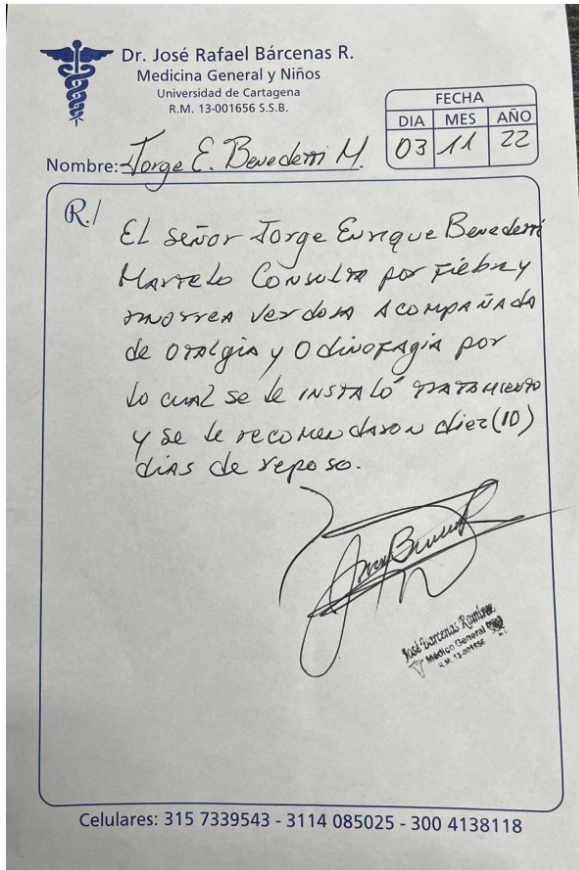 Dr. José Rafael Bárcenas R.
Medicina General y Niños
Universidad de Cartagena
R.M. 13-001656 S.S.B.
FECHA
DIA MES AÑO
03 11 22
Nombre: Jorge E. Benedetti M.
R./
El señor Jorge Enrique Benedetti
Martelo Consulta por Fiebre y
rinorrea verdosa Acompañada
de otalgia y Odinofagia por
lo cual se le instaló tratamiento
y se le recomendaron diez (10)
días de reposo.
José Barcenas Ramirez
Médico General
R.M. 13-001656
Celulares: 315 7339543 - 3114 085025 - 300 4138118